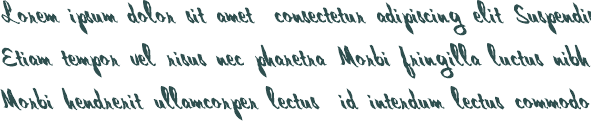 Lorem ipsum dolor sit amet consectetur adipiscing elit Suspendi
Etiam tempor vel risus nec pharetra Morbi fringilla luctus nibh
Morbi hendrerit ullamcorper lectus id interdum lectus commodo